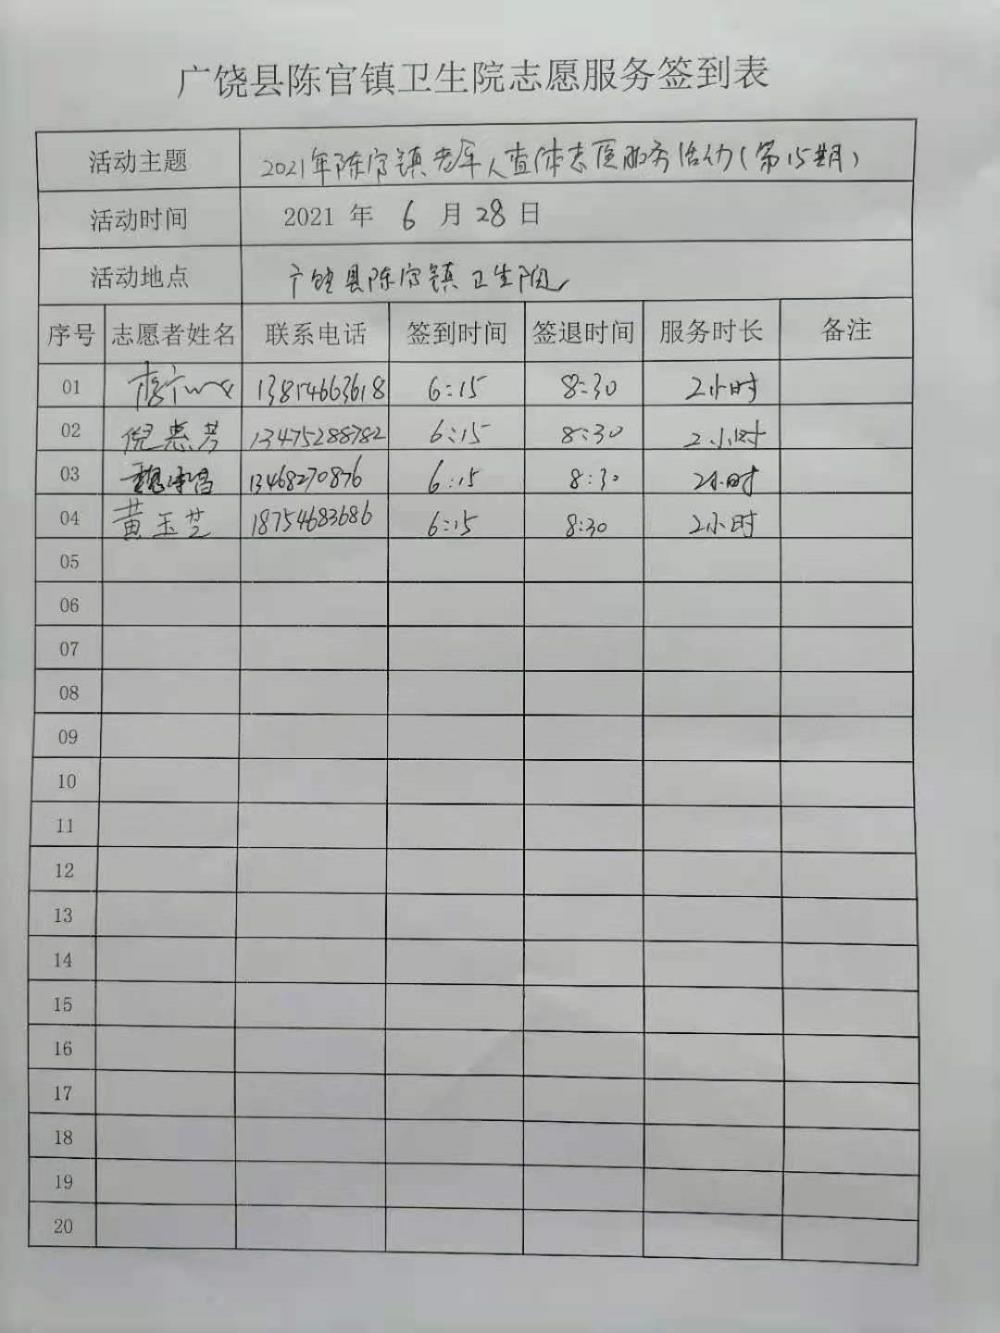 广饶县陈官镇卫生院志愿服务签到表
活动主题 2021年陈官镇老年人查体志愿服务活动(第15期)
活动时间 2021 年 6 月 28 日
活动地点 广饶县陈官镇卫生院
序号 志愿者姓名 联系电话 签到时间 签退时间 服务时长 备注
01 13814663618 6:15 8:30 2小时
02 倪惠芳 13475288782 6:15 8:30 2小时
03 13468270876 6:15 8:30 2小时
04 黄玉芝 18754683686 6:15 8:30 2小时
05
06
07
08
09
10
11
12
13
14
15
16
17
18
19
20